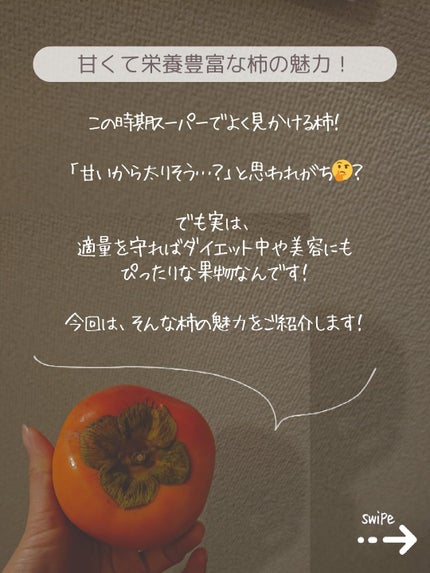 甘くて栄養豊富な柿の魅力！
この時期スーパーでよく見かける柿！
「甘いから太りそう…？」と思われがち🤔？
でも実は、
適量を守ればダイエット中や美容にも
ぴったりな果物なんです！
今回は、そんな柿の魅力をご紹介します！
swipe